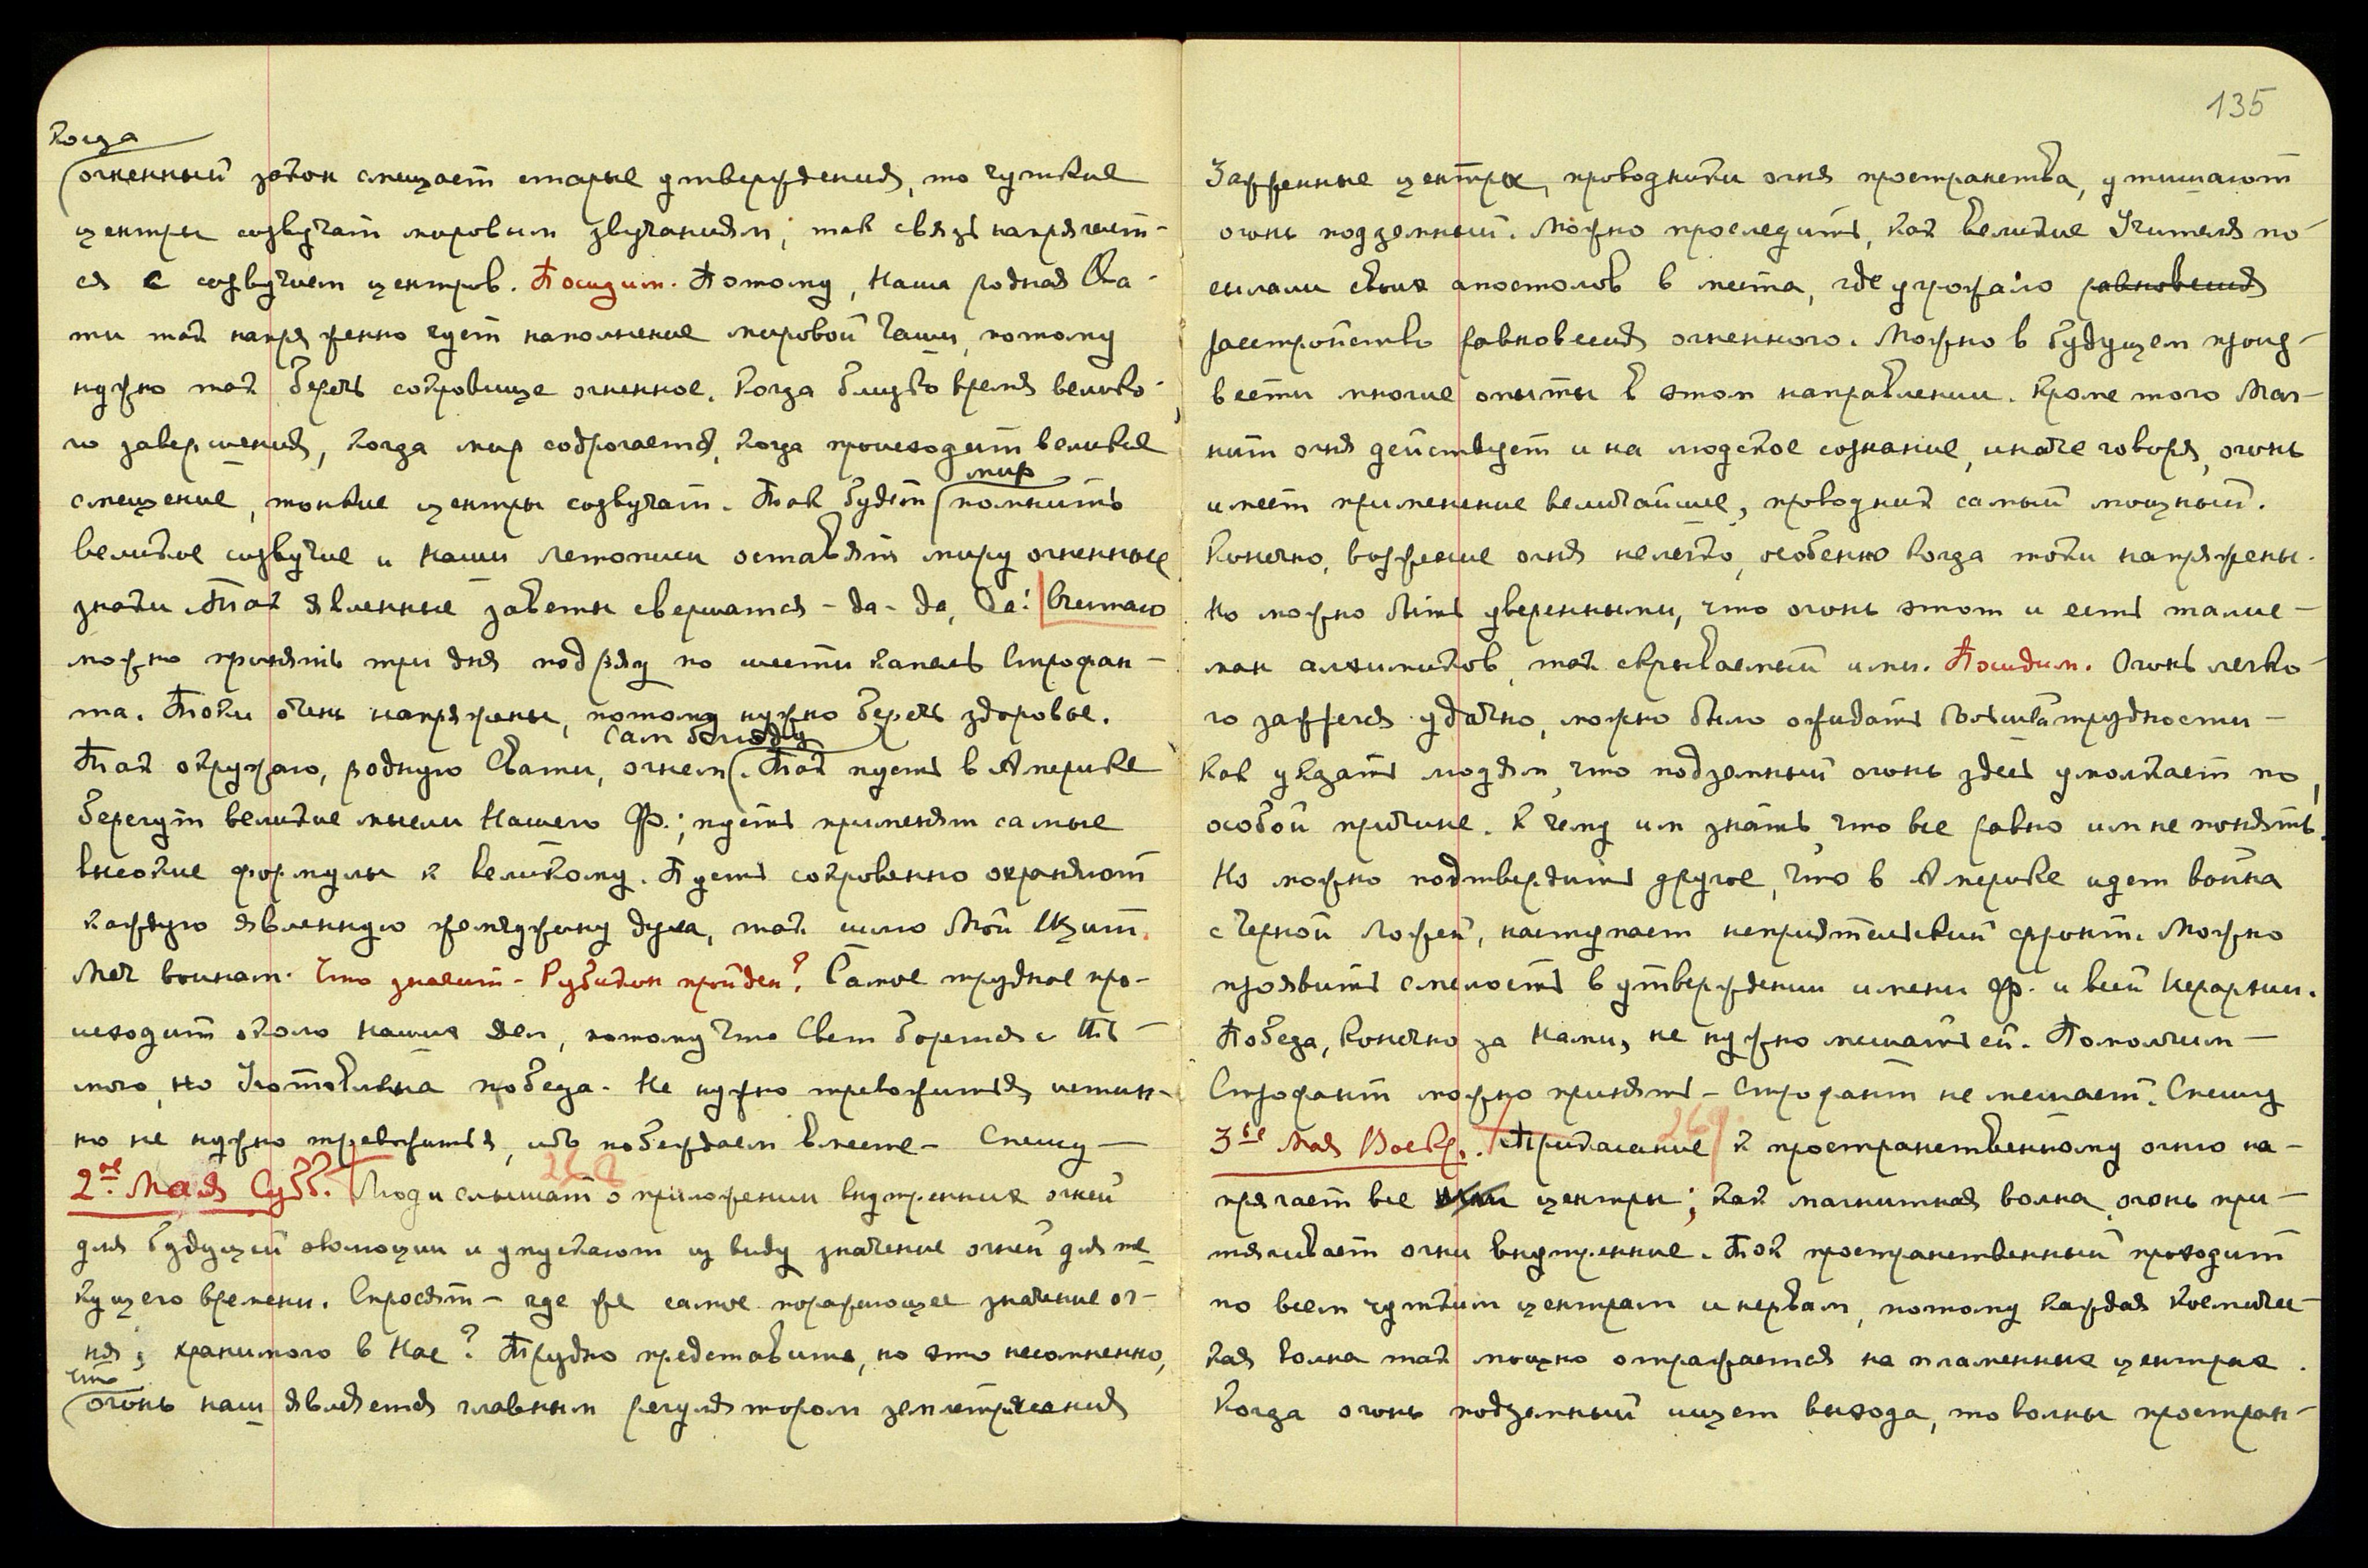 Когда
огненный закон смещает старые утверждения, то чуткие
центры созвучат мировым звучаниям; так связь напрягает-
ся с созвучием центров. Посидим. Потому, Наша родная Сва-
ти так напряженно чует наполнение мировой Чаши, потому
нужно так беречь сокровище огненное. Когда близко время велико-
го завершения, когда мир содрогается, когда происходит великое
смещение, тонкие центры созвучат. Так будет помнить
мир
великое созвучие и наши летописи оставят миру огненные
знаки. Так явленные заветы свершатся - да - да, Да! Считаю
можно принять три дня подряд по шести капель Строфан-
та. Токи очень напряжены, потому нужно беречь здоровье.
сам блюду
Так окружаю, родную Свати, огнем. Так пусть в Америке
берегут великие мысли Нашего Ф.; пусть применят самые
высокие формулы к великому. Пусть сокровенно охраняют
каждую явленную жемчужину духа, так шлю Мой Щит.
Меч воинам. Что значит - Рубикон пройден? Самое трудное про-
исходит около наших дел, потому что Свет борется с Ть-
мою, но Уготовлена победа. Не нужно тревожиться, истин-
но не нужно тревожиться, ибо побеждаем вместе - Спешу -
2ое Мая Субб. 268 Люди слышат о приложении внутренних огней
для будущей эволюции и упускают из виду значение огней для те
кущего времени. Спросят - где же самое поражающее значение ог-
ня, хранимого в Нас? Трудно представить, но это несомненно,
что
огонь наш является главным регулятором землетрясения
135
Зажженные центры, проводники огня пространства, утишают
огонь подземный. Можно проследить, как Великие Учителя по-
сылали своих апостолов в места, где угрожало равновесия
расстройство равновесия огненного. Можно в будущем произ-
вести многие опыты в этом направлении. Кроме того Маг-
нит огня действует и на людское сознание, иначе говоря, огонь
имеет применение величайшее, проводник самый мощный.
Конечно, возжение огня нелегко, особенно когда токи напряжены.
Но можно быть уверенными, что огонь этот и есть талис-
ман алхимиков, так скрываемый ими. Посидим. Огонь легко-
го зажегся удачно, можно было ожидать большей трудности -
Как указать людям, что подземный огонь здесь умолкает по
особой причине. К чему им знать, что все равно им не понять.
Но можно подтвердить другое, что в Америке идет война
с Черной Ложей, наступает неприятельский фронт. Можно
проявить смелость в утверждении имени Ф. и всей Иерархии.
Победа, конечно за Нами, не нужно мешать ей. Помолчим -
Строфант можно принять - Строфант не мешает. Спешу
3ье Мая Воскр. 269 Прикасание к пространственному огню на-
прягает все центры; как магнитная волна, огонь при-
тягивает огни внутренние. Ток пространственный проходит
по всем чутким центрам и нервам, потому каждая космичес-
кая волна так мощно отражается на пламенных центрах.
Когда огонь подземный ищет выхода, то волны простран-